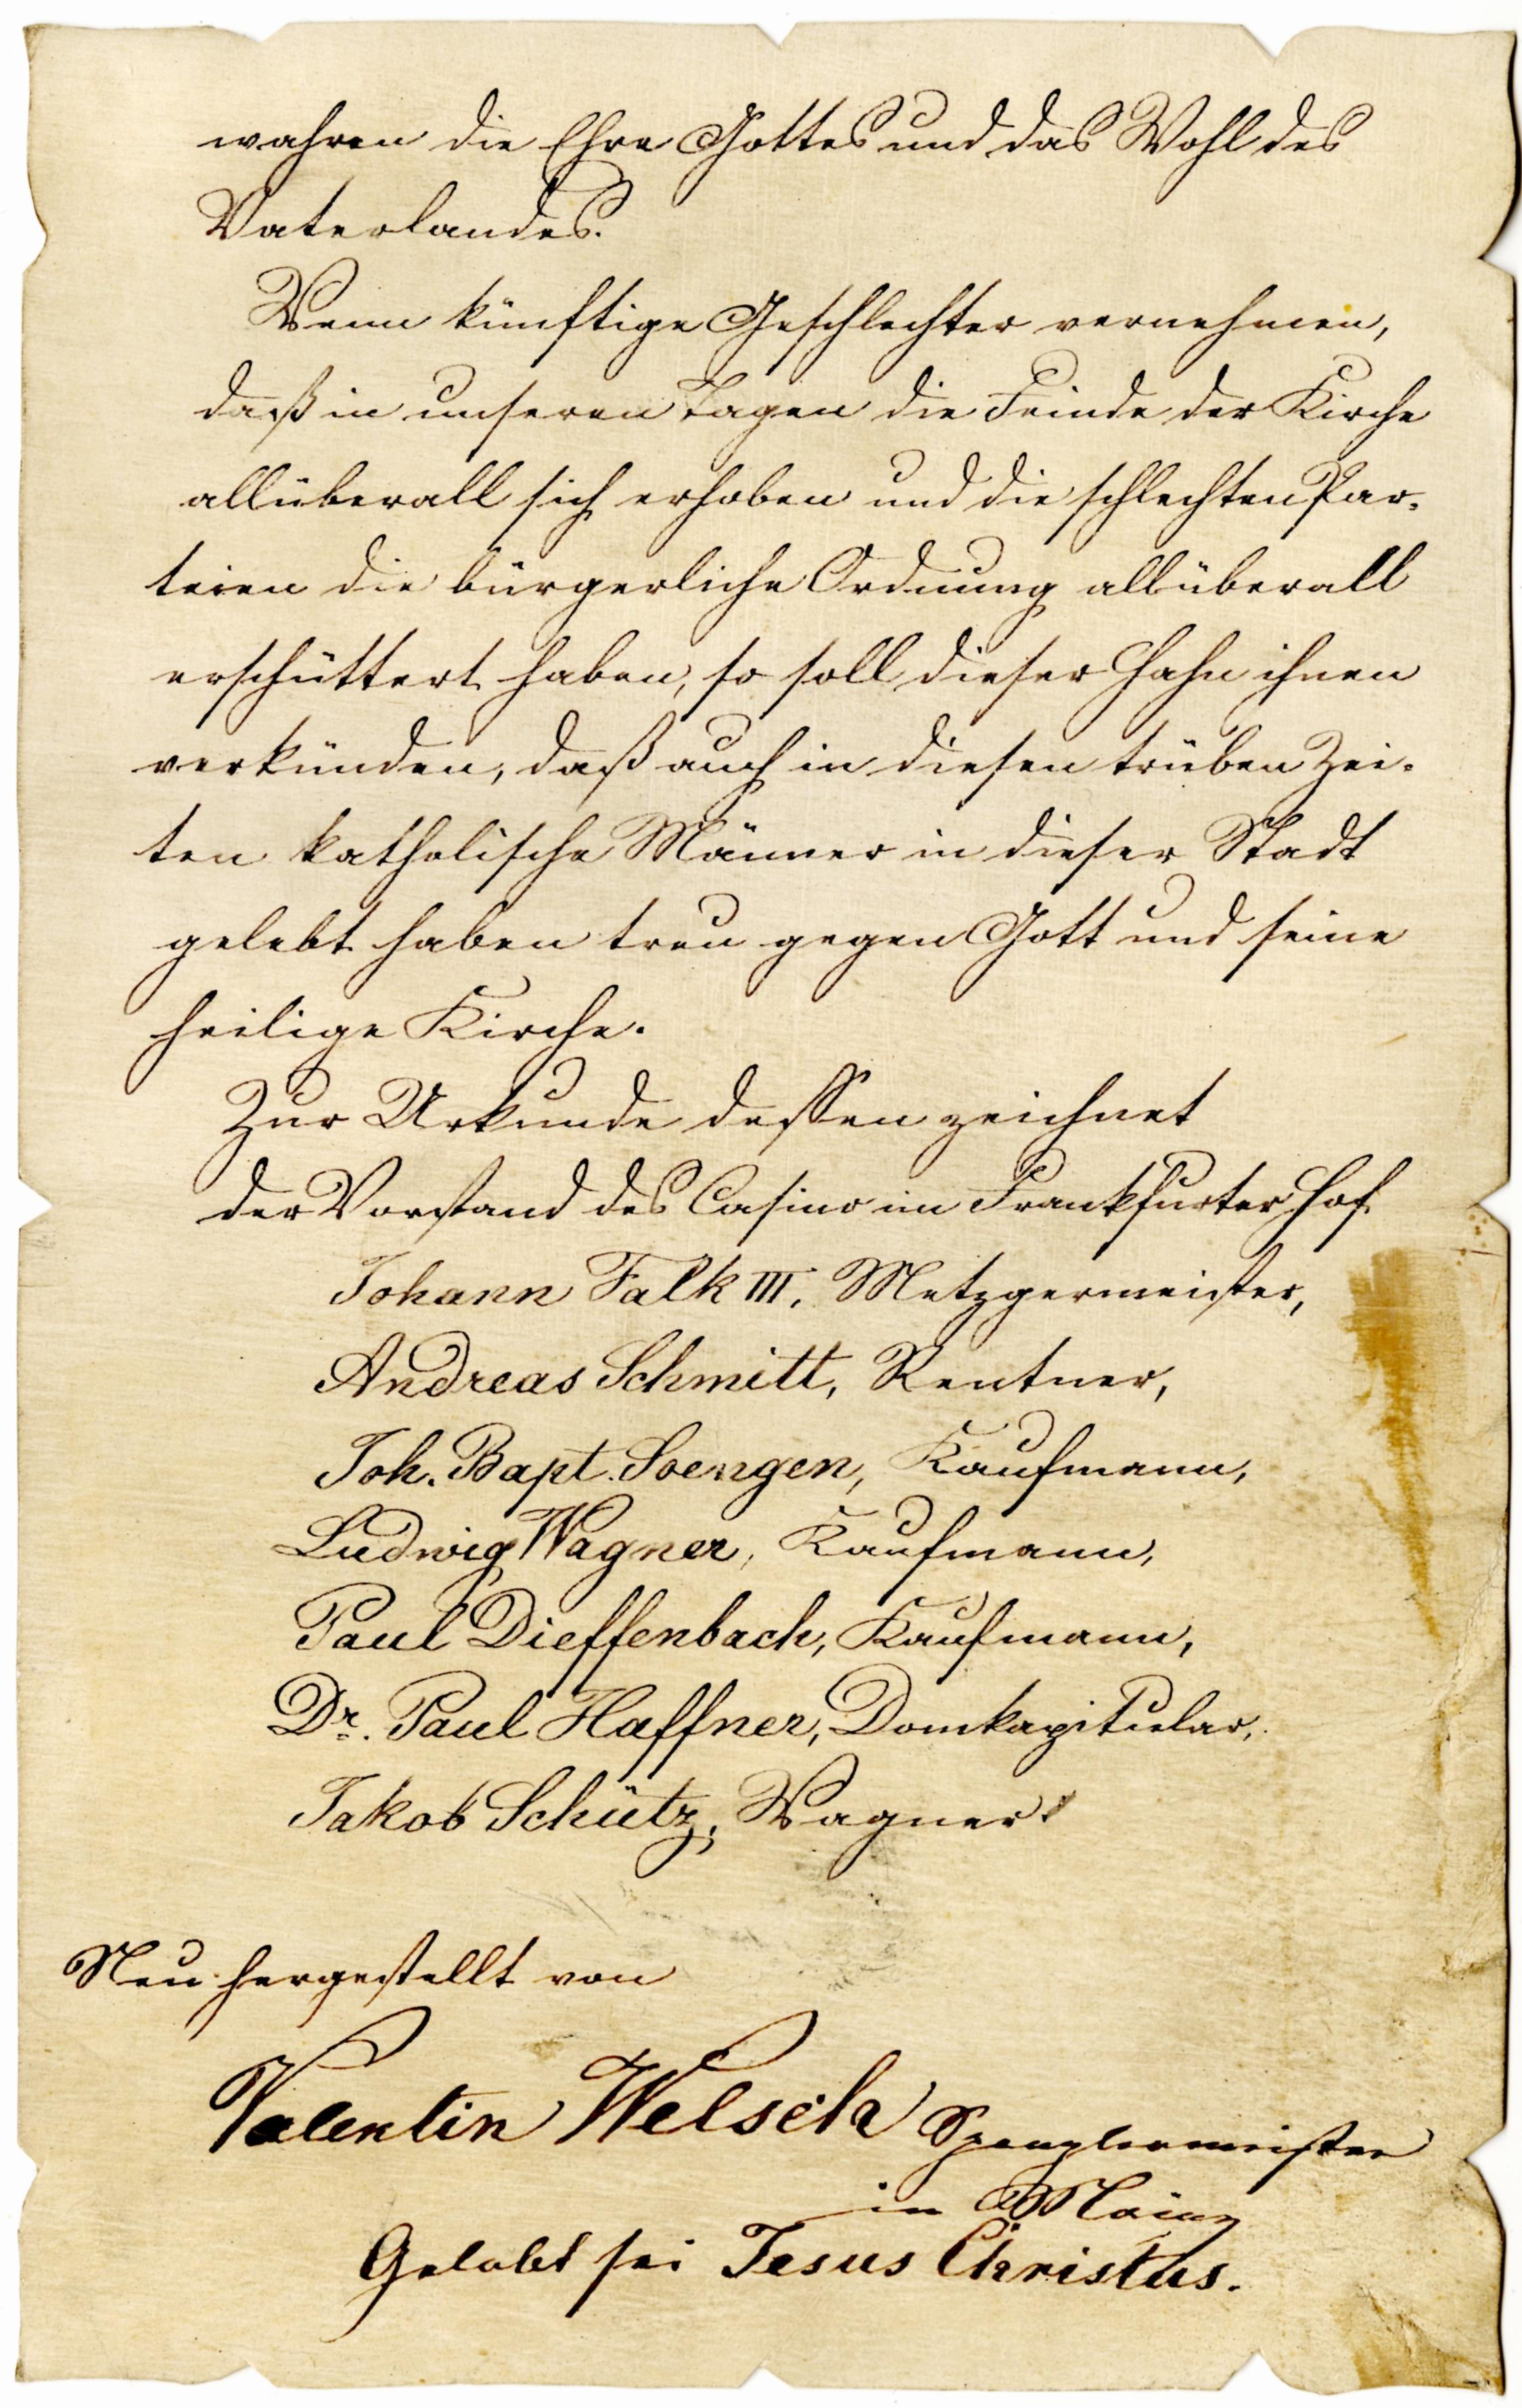 wahren die Ehre Gottes und das Wohl des
Vaterlandes.
Wenn künftige Geschlechter vernehmen,
daß in unseren Tagen die Feinde der Kirche
allüberall sich erhoben und die schlechten Par-
teien die bürgerliche Ordnung allüberall
erschüttert haben, so soll dieser Hahn ihnen
verkünden, daß auch in diesen trüben Zei-
ten katholische Männer in dieser Stadt
gelebt haben treu gegen Gott und seine
heilige Kirche.
Zur Urkunde dessen zeichnet
der Vorstand des Casino im Frankfurter Hof.
Johann Falk III. Metzgermeister,
Andreas Schmitt, Rentner,
Joh. Bapt. Soengen, Kaufmann,
Ludwig Wagner, Kaufmann,
Paul Dieffenbach, Kaufmann,
Dr. Paul Haffner, Domkapitular,
Jakob Schütz, Wagner.
Neu hergestellt von
Valentin Welsch Spenglermeister
in Mainz
Gelobt sei Jesus Christus.